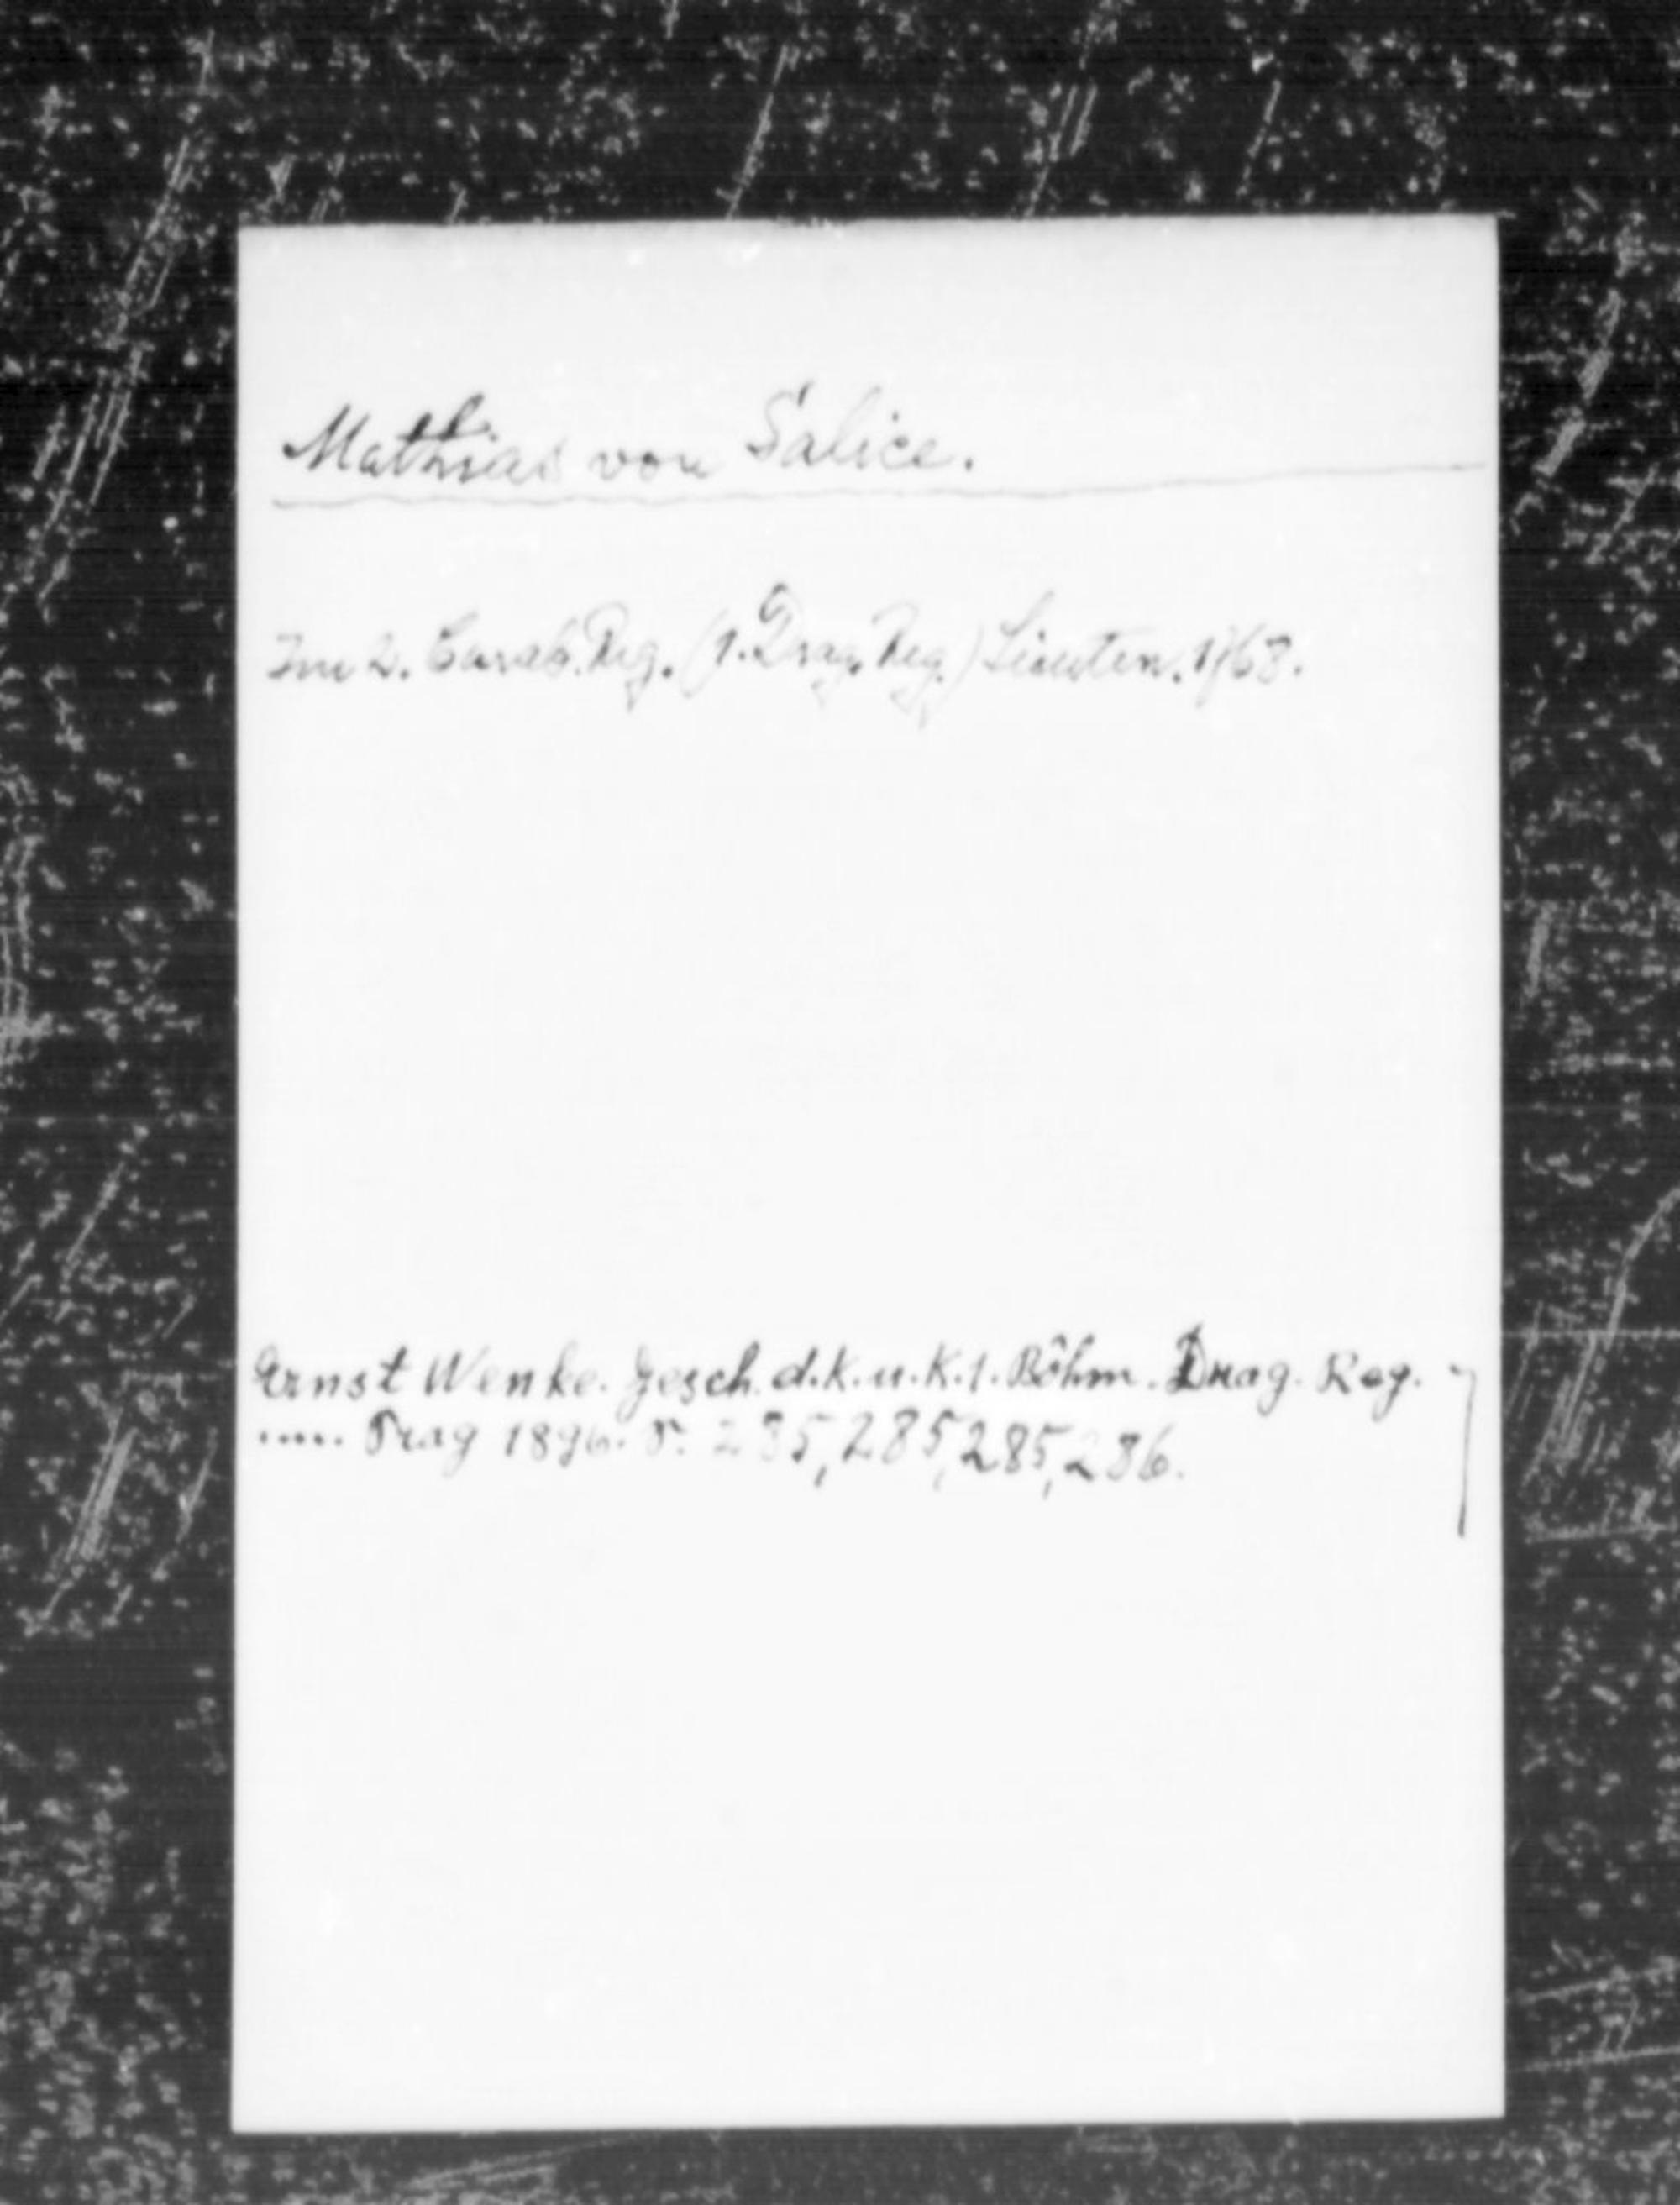 Mathias von Salice.
Im 2. Carab. Reg. (1. Drag. Reg.) Lieuten. 1768.
Ernst Wenke. Gesch. d. k. u. k. 1. Böhm. Drag. Reg.
..... Prag 1896. S. 285, 285, 285, 286.